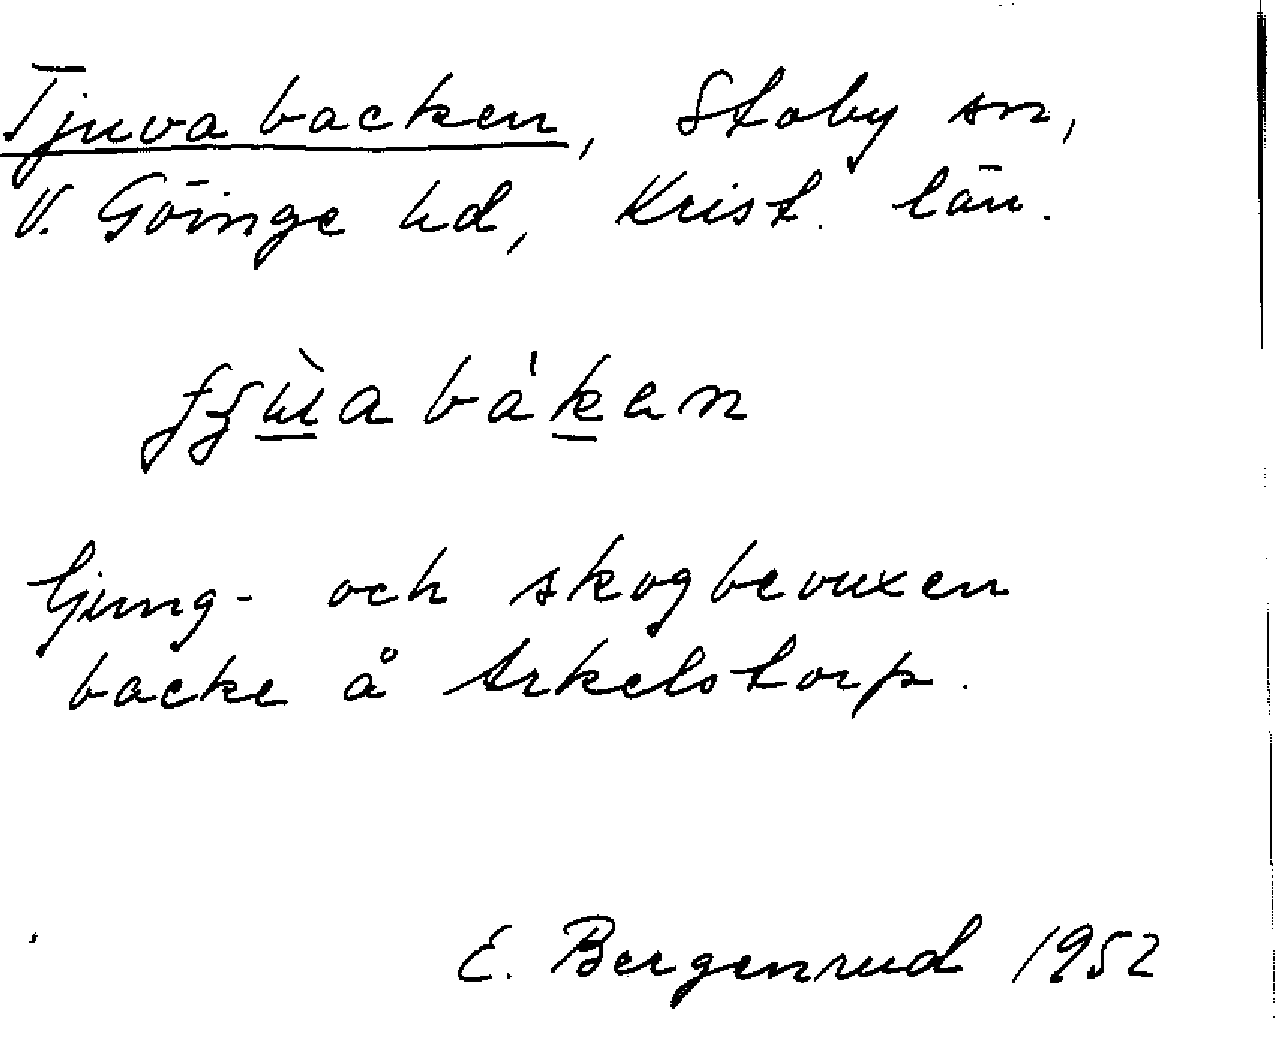 Tjuvabacken, Stoby sn,
V. Göinge hd, Krist. län.
ljung- och skogbevuxen
backe å Arkelstorp.
E. Bergenrud 1952